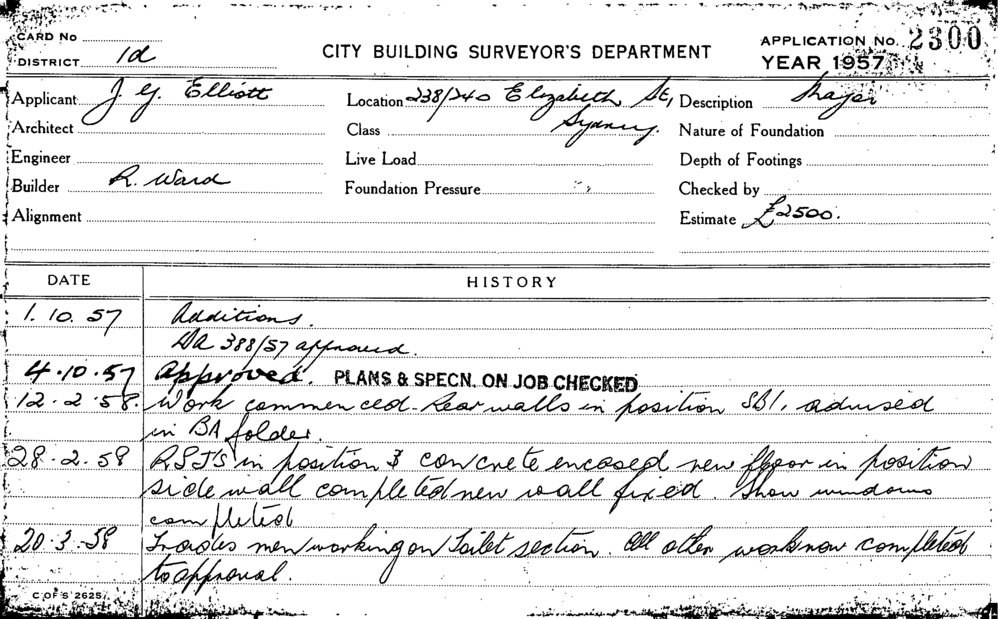 CARD No
DISTRICT 1d
CITY BUILDING SURVEYOR'S DEPARTMENT
APPLICATION No. 2300
YEAR 1957
Applicant J. G. Elliott
Location 238/240 Elizabeth St,
Sydney.
Description
Architect
Class
Nature of Foundation
Engineer
Live Load
Depth of Footings
Builder R. Ward
Foundation Pressure
Checked by
Alignment
Estimate £2500.
DATE
HISTORY
1.10.57 Additions.
DA 388/57 approved.
4.10.57 Approved. PLANS & SPECN. ON JOB CHECKED
12.2.58. Work commenced. Rear walls in position SB1, advised
in BA folder.
28.2.58 RSJ'S in position & concrete encased new floor in position
side wall completed new wall fixed. Show windows
completed
20.3.58 Tradesmen working on Toilet section. All other work now completed
to approval.
C OF S 2625